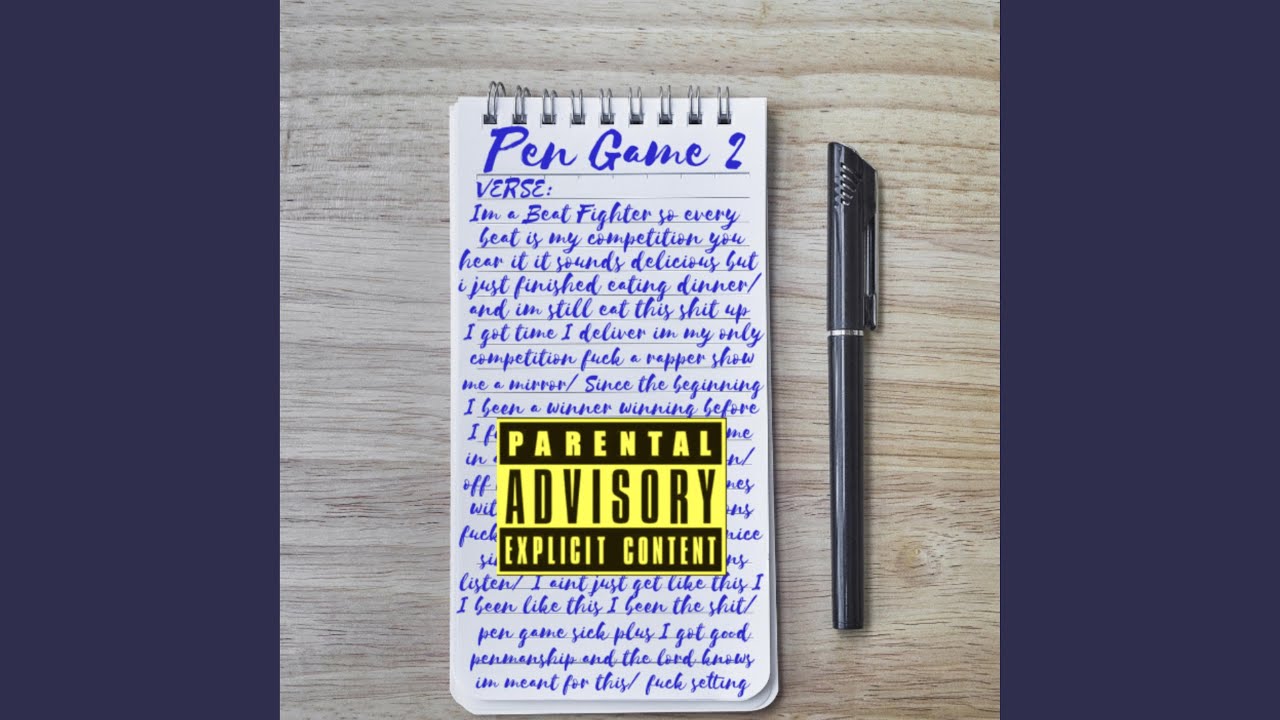 Pen Game 2
VERSE:
Im a Beat Fighter so every
beat is my competition you
hear it it sounds delicious but
i just finished eating dinner/
and im still eat this shit up
I got time I deliver im my only
competition fuck a rapper show
me a mirror/ Since the beginning
I been a winner winning before
PARENTAL
ADVISORY
EXPLICIT CONTENT
listen/ I aint just get like this I
I been like this I been the shit/
pen game sick plus I got good
penmanship and the lord knows
im meant for this/ fuck setting